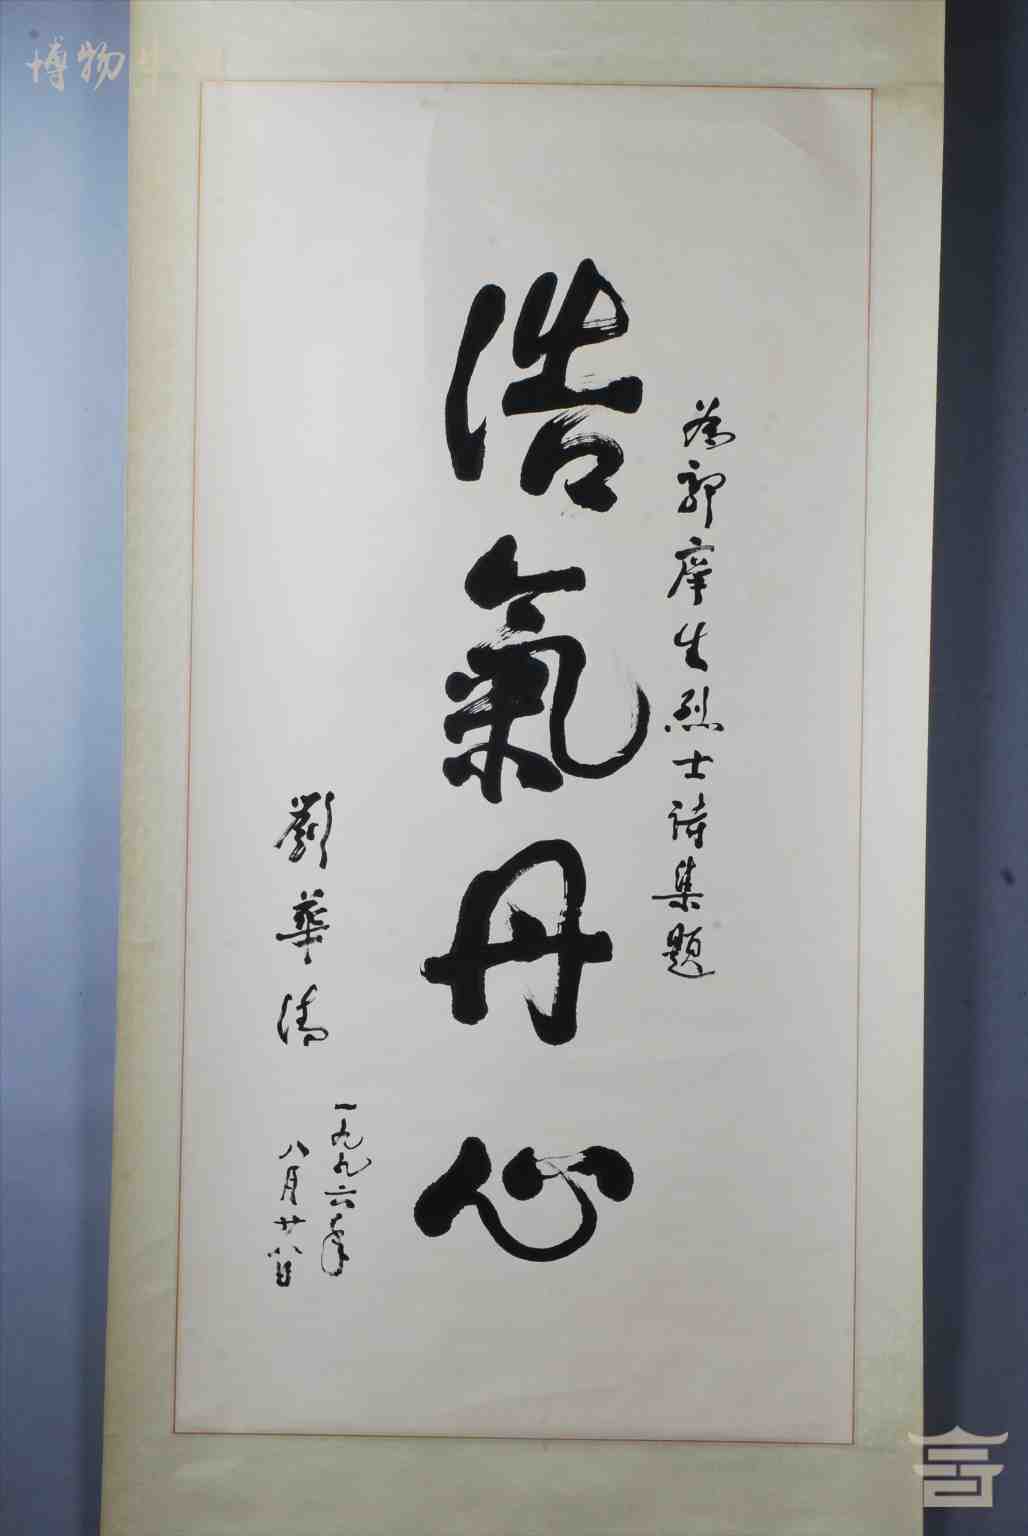 博物
为郭庠生烈士诗集题
浩氣丹心
劉華清
一九九六年
八月廿八日